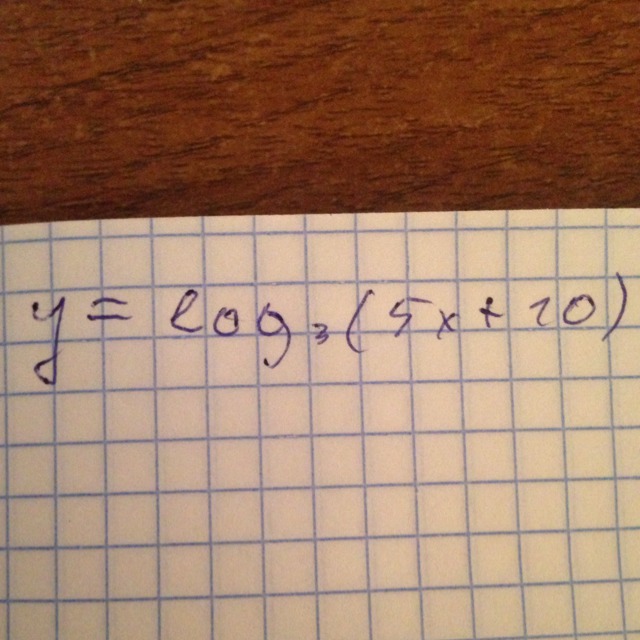 y = log₃(5x + 10)